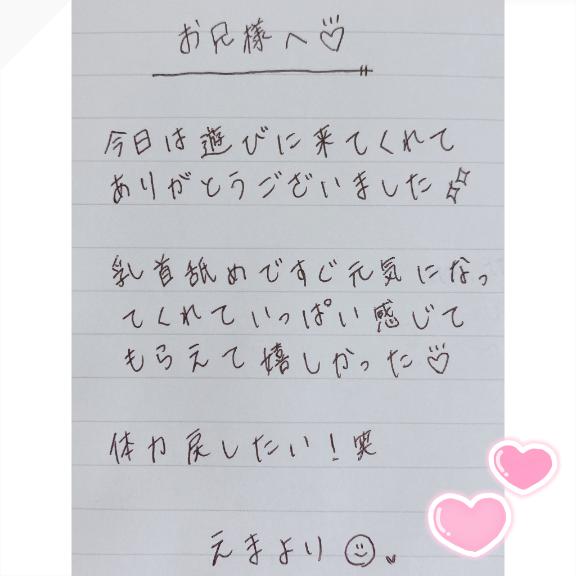 お兄様へ♡
今日は遊びに来てくれて
ありがとうございました
乳首舐めですぐ元気になっ
てくれていっぱい感じて
もらえて嬉しかった♡
体力戻したい！笑
えまより